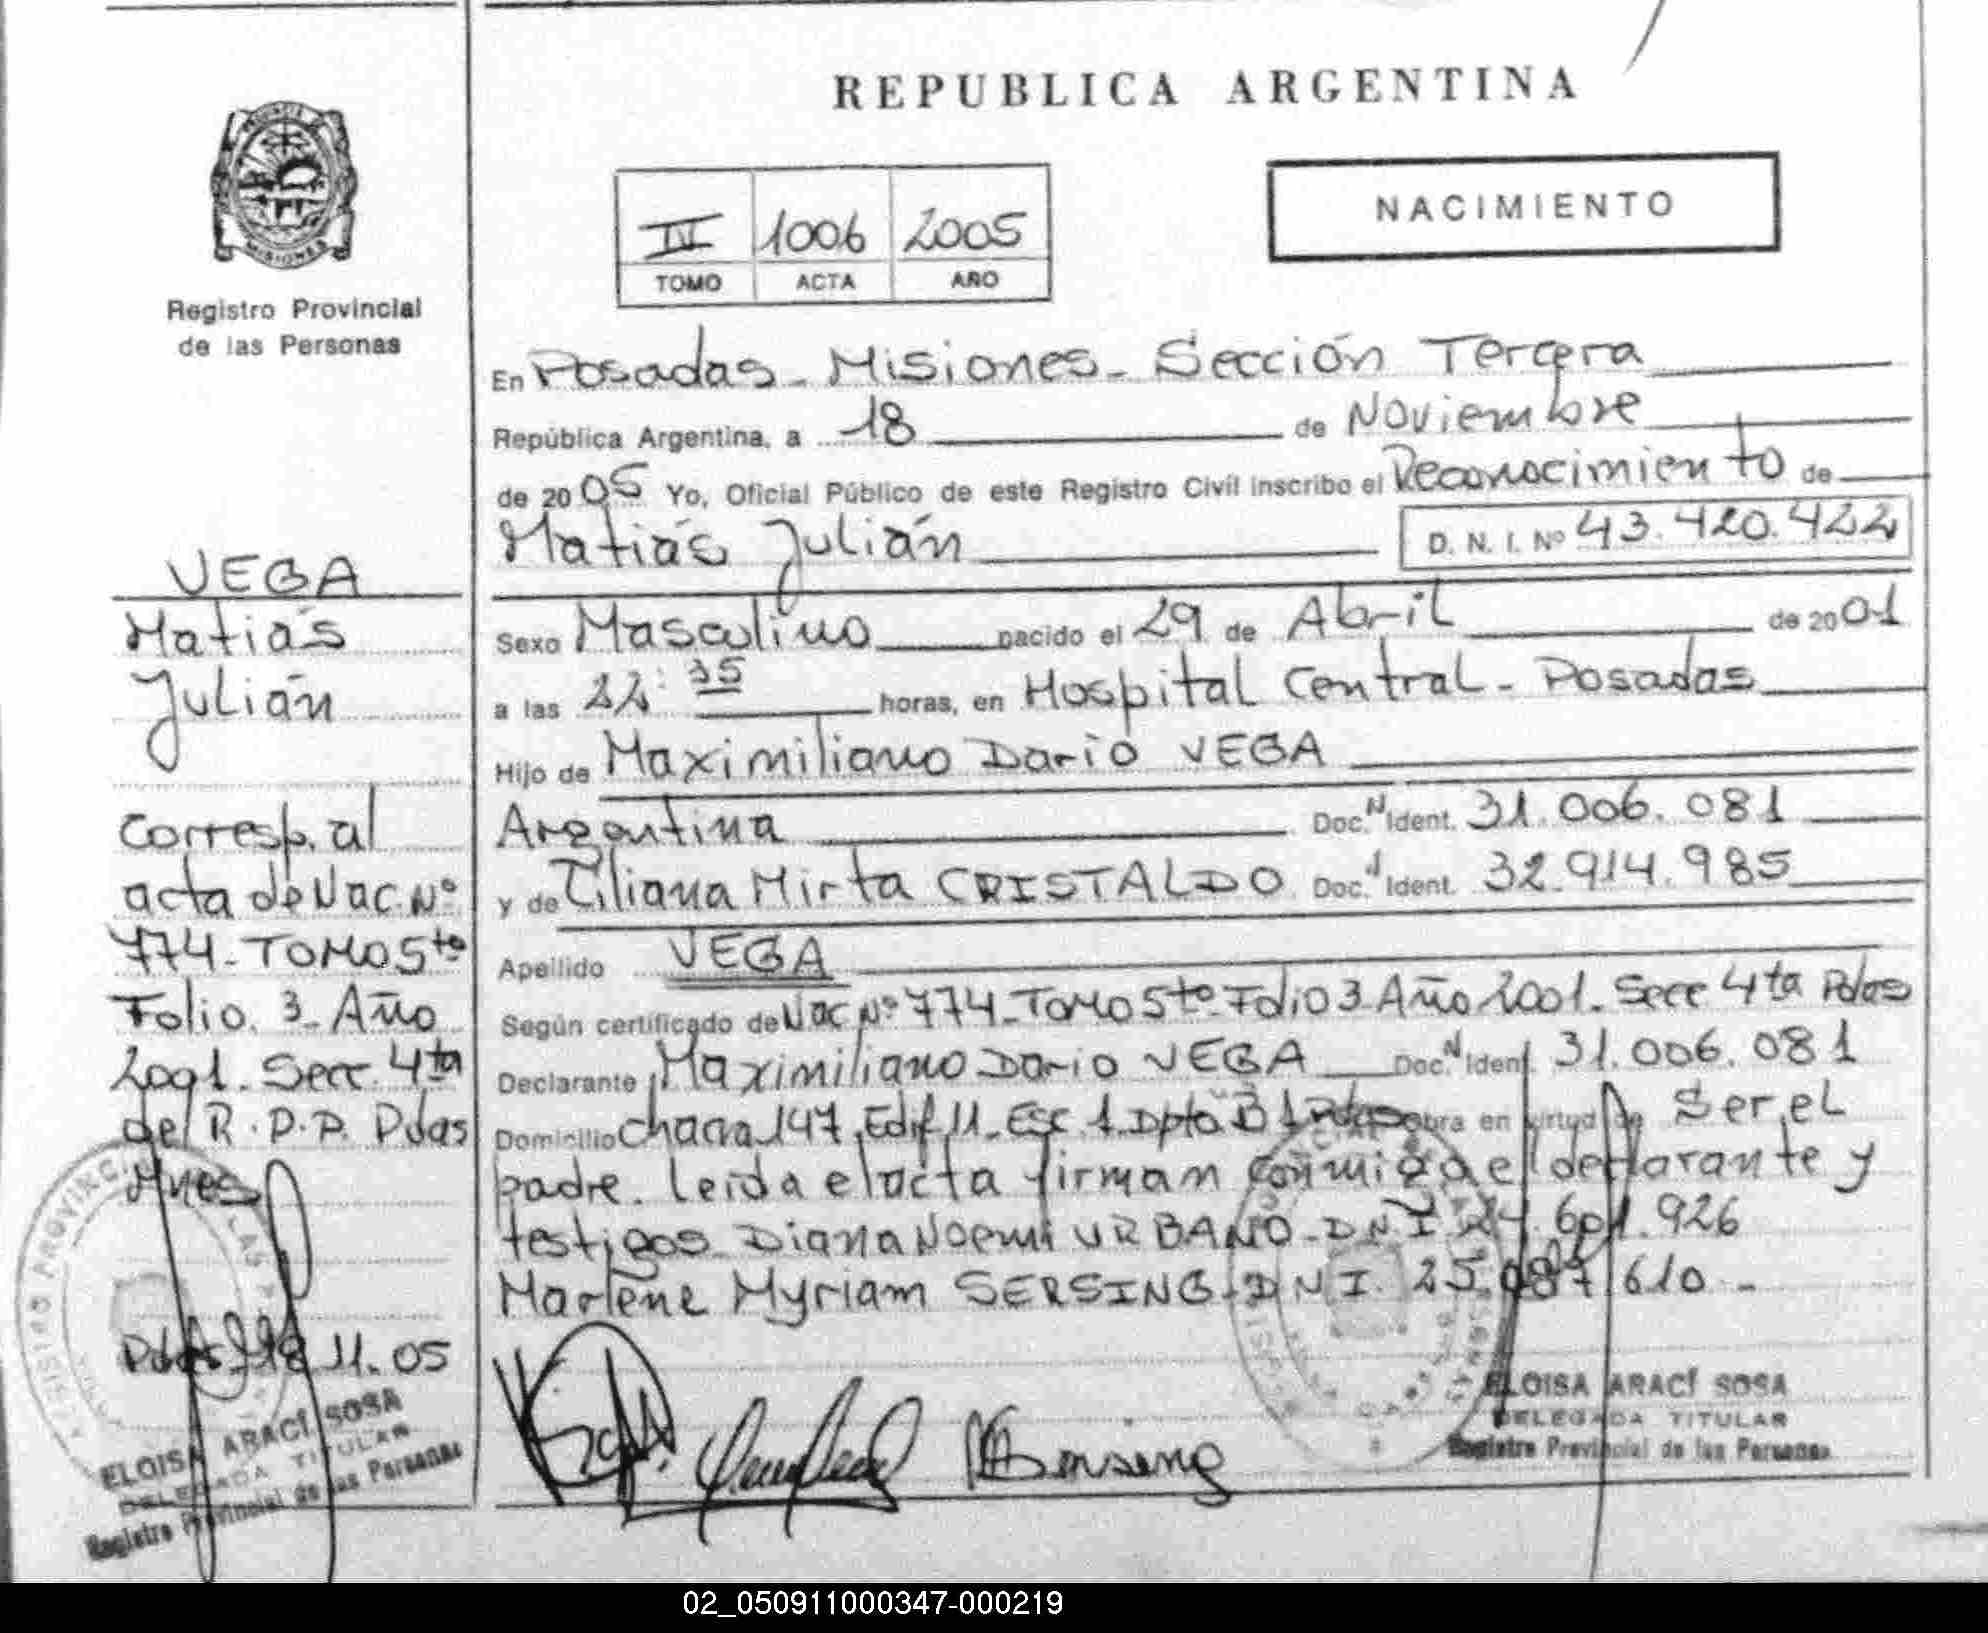 REPUBLICA ARGENTINA
NACIMIENTO
IV 1006 2005
TOMO ACTA AÑO
MISIONES
Registro Provincial
de las Personas
En Posadas - Misiones - Sección Tercera
República Argentina, a 18 de Noviembre
de 2005 Yo, Oficial Público de este Registro Civil inscribo el Reconocimiento de
Matías Julián D. N. I. Nº 43.420.422
Sexo Masculino nacido el 29 de Abril de 2001
a las 22:35 horas, en Hospital Central - Posadas
Hijo de Maximiliano Dario VEGA
Argentina Doc. N Ident. 31.006.081
y de Liliana Mirta CRISTALDO Doc. Ident. 32.914.985
Apellido VEGA
Según certificado de Nac Nº 774 - Tomo 5to - Folio 3 - Año 2001 - Secc 4ta Pdas
Declarante Maximiliano Dario VEGA Doc. N Ident. 31.006.081
Domicilio chacra 147 Edif 11 - Esc. 1 - Dpto B 1 Pdas obra en virtud de Ser el
padre. Leída el acta firman conmigo el declarante y
testigos Diana Noemi URBANO - DNI 24.601.926
Marlene Myriam SERSING - DNI. 25.087.610 -
VEGA
Matías
Julián
Corresp. al
acta de Nac. Nº
774 - TOMO 5to
Folio. 3 - Año
2001. Secc. 4ta
del R.P.P. Pdas
Mnes
Pdas. 18.11.05
ELOISA ARACÍ SOSA
DELEGADA TITULAR
Registro Provincial de las Personas
ELOISA ARACÍ SOSA
DELEGADA TITULAR
Registro Provincial de las Personas
02_050911000347-000219